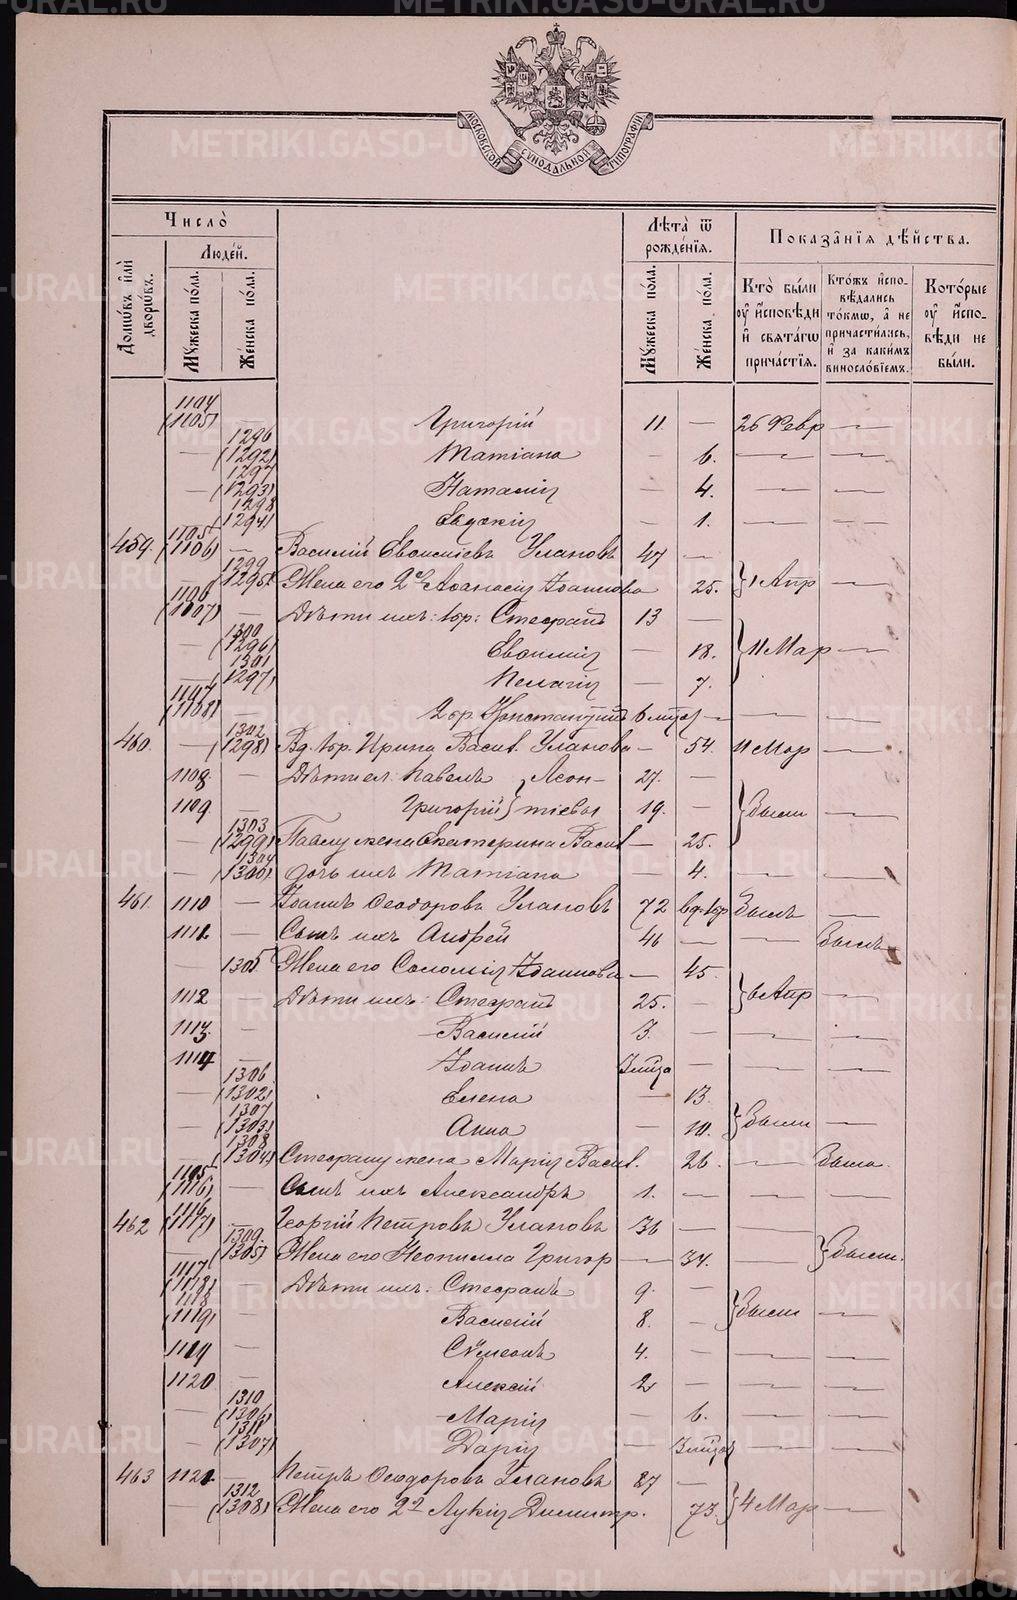 МОСКОВСКОЙ СѴНОДАЛЬНОЙ ТИПОГРАФІИ
Число̀
Людє́й.
Домѡ́въ и҆лѝ дворѡ́въ.
Мꙋ́жеска по́ла.
Же́нска по́ла.
Лѣ́та ѿ рожде́нїѧ.
Мꙋ́жеска по́ла.
Же́нска по́ла.
Показа̑нїѧ дѣ́йства.
Кто̀ бы́ли ᲂу҆ и҆сповѣ́ди и҆ свѧта́гѡ прича́стїѧ.
Кто́жъ и҆сповѣ́дались то́кмѡ, а҆ не причасти́лись, и҆ за каки́мъ винословїемъ.
Кото́рые ᲂу҆ и҆сповѣ́ди не бы́ли.
1104 (1105) Григорій 11. — 26 Февр —
— 1296 (1292) Татіана — 6. — —
— 1297 (1293) Наталія — 4. — —
1298 (1294) Евдокія — 1. — —
459. 1105 (1106) — Василій Евѳиміевъ Улановъ 47 —
1299 (1295) Жена его 2я Аѳанасія Іоаннова 25. } 1 Апр —
1106 (1107) Дѣти ихъ: 1бр: Стефанъ 13 —
— 1300 (1296) Евѳимія — 18. } 11 Мар —
— 1301 (1297) Пелагія — 7.
1107 (1108) — 2 бр. Константинъ 6 мцов — — —
460. — 1302 (1298) Вд. 1бр. Ирина Васил. Уланова — 54. 11 Мар —
1108. — Дѣти ея: Павелъ } Леон- 27. —
1109 — Григорій } тіевы 19. — } Были —
— 1303 (1299) Павлу жена Екатерина Васил — 25.
— 1304 (1300) дочь ихъ Татіана — 4. — —
461. 1110 — Іоаннъ Ѳеодоровъ Улановъ 72 вд. 1бр Былъ —
1111. — Сынъ ихъ Андрей 46 — — Былъ
— 1305 Жена его Соломія Іоаннова — 45.
1112 — Дѣти ихъ: Стефанъ 25. — } 6 Апр —
1113. — Василій 3. — — —
1114 — Іоаннъ 3 мцa — — —
— 1306 (1302) Елена — 13.
— 1307 (1303) Анна — 10. } Были —
— 1308 (1304) Стефану жена Марія Васил. 26. — Была.
1115 (1116) — Сынъ ихъ Александръ 1. — — —
462 1116 (1117) — Георгій Петровъ Улановъ 36 — —
— 1309. (1305) Жена его Неонилла Григор — 34. — } Были.
1117 (1118) — Дѣти ихъ: Стефанъ 9. —
1118 (1119) — Василій 8. — } Были —
1119 — Сѷмеонъ 4. — — —
1120 — Алексій 2 — — —
— 1310 (1306) Марія — 6. — —
— 1311 (1307) Дарія — 3 мцов — —
463 1121. — Петръ Ѳеодоровъ Улановъ 87 —
— 1312 (1308) Жена его 2я Лукія Димитр. 73. } 4 Мар —
METRIKI.GASO-URAL.RU